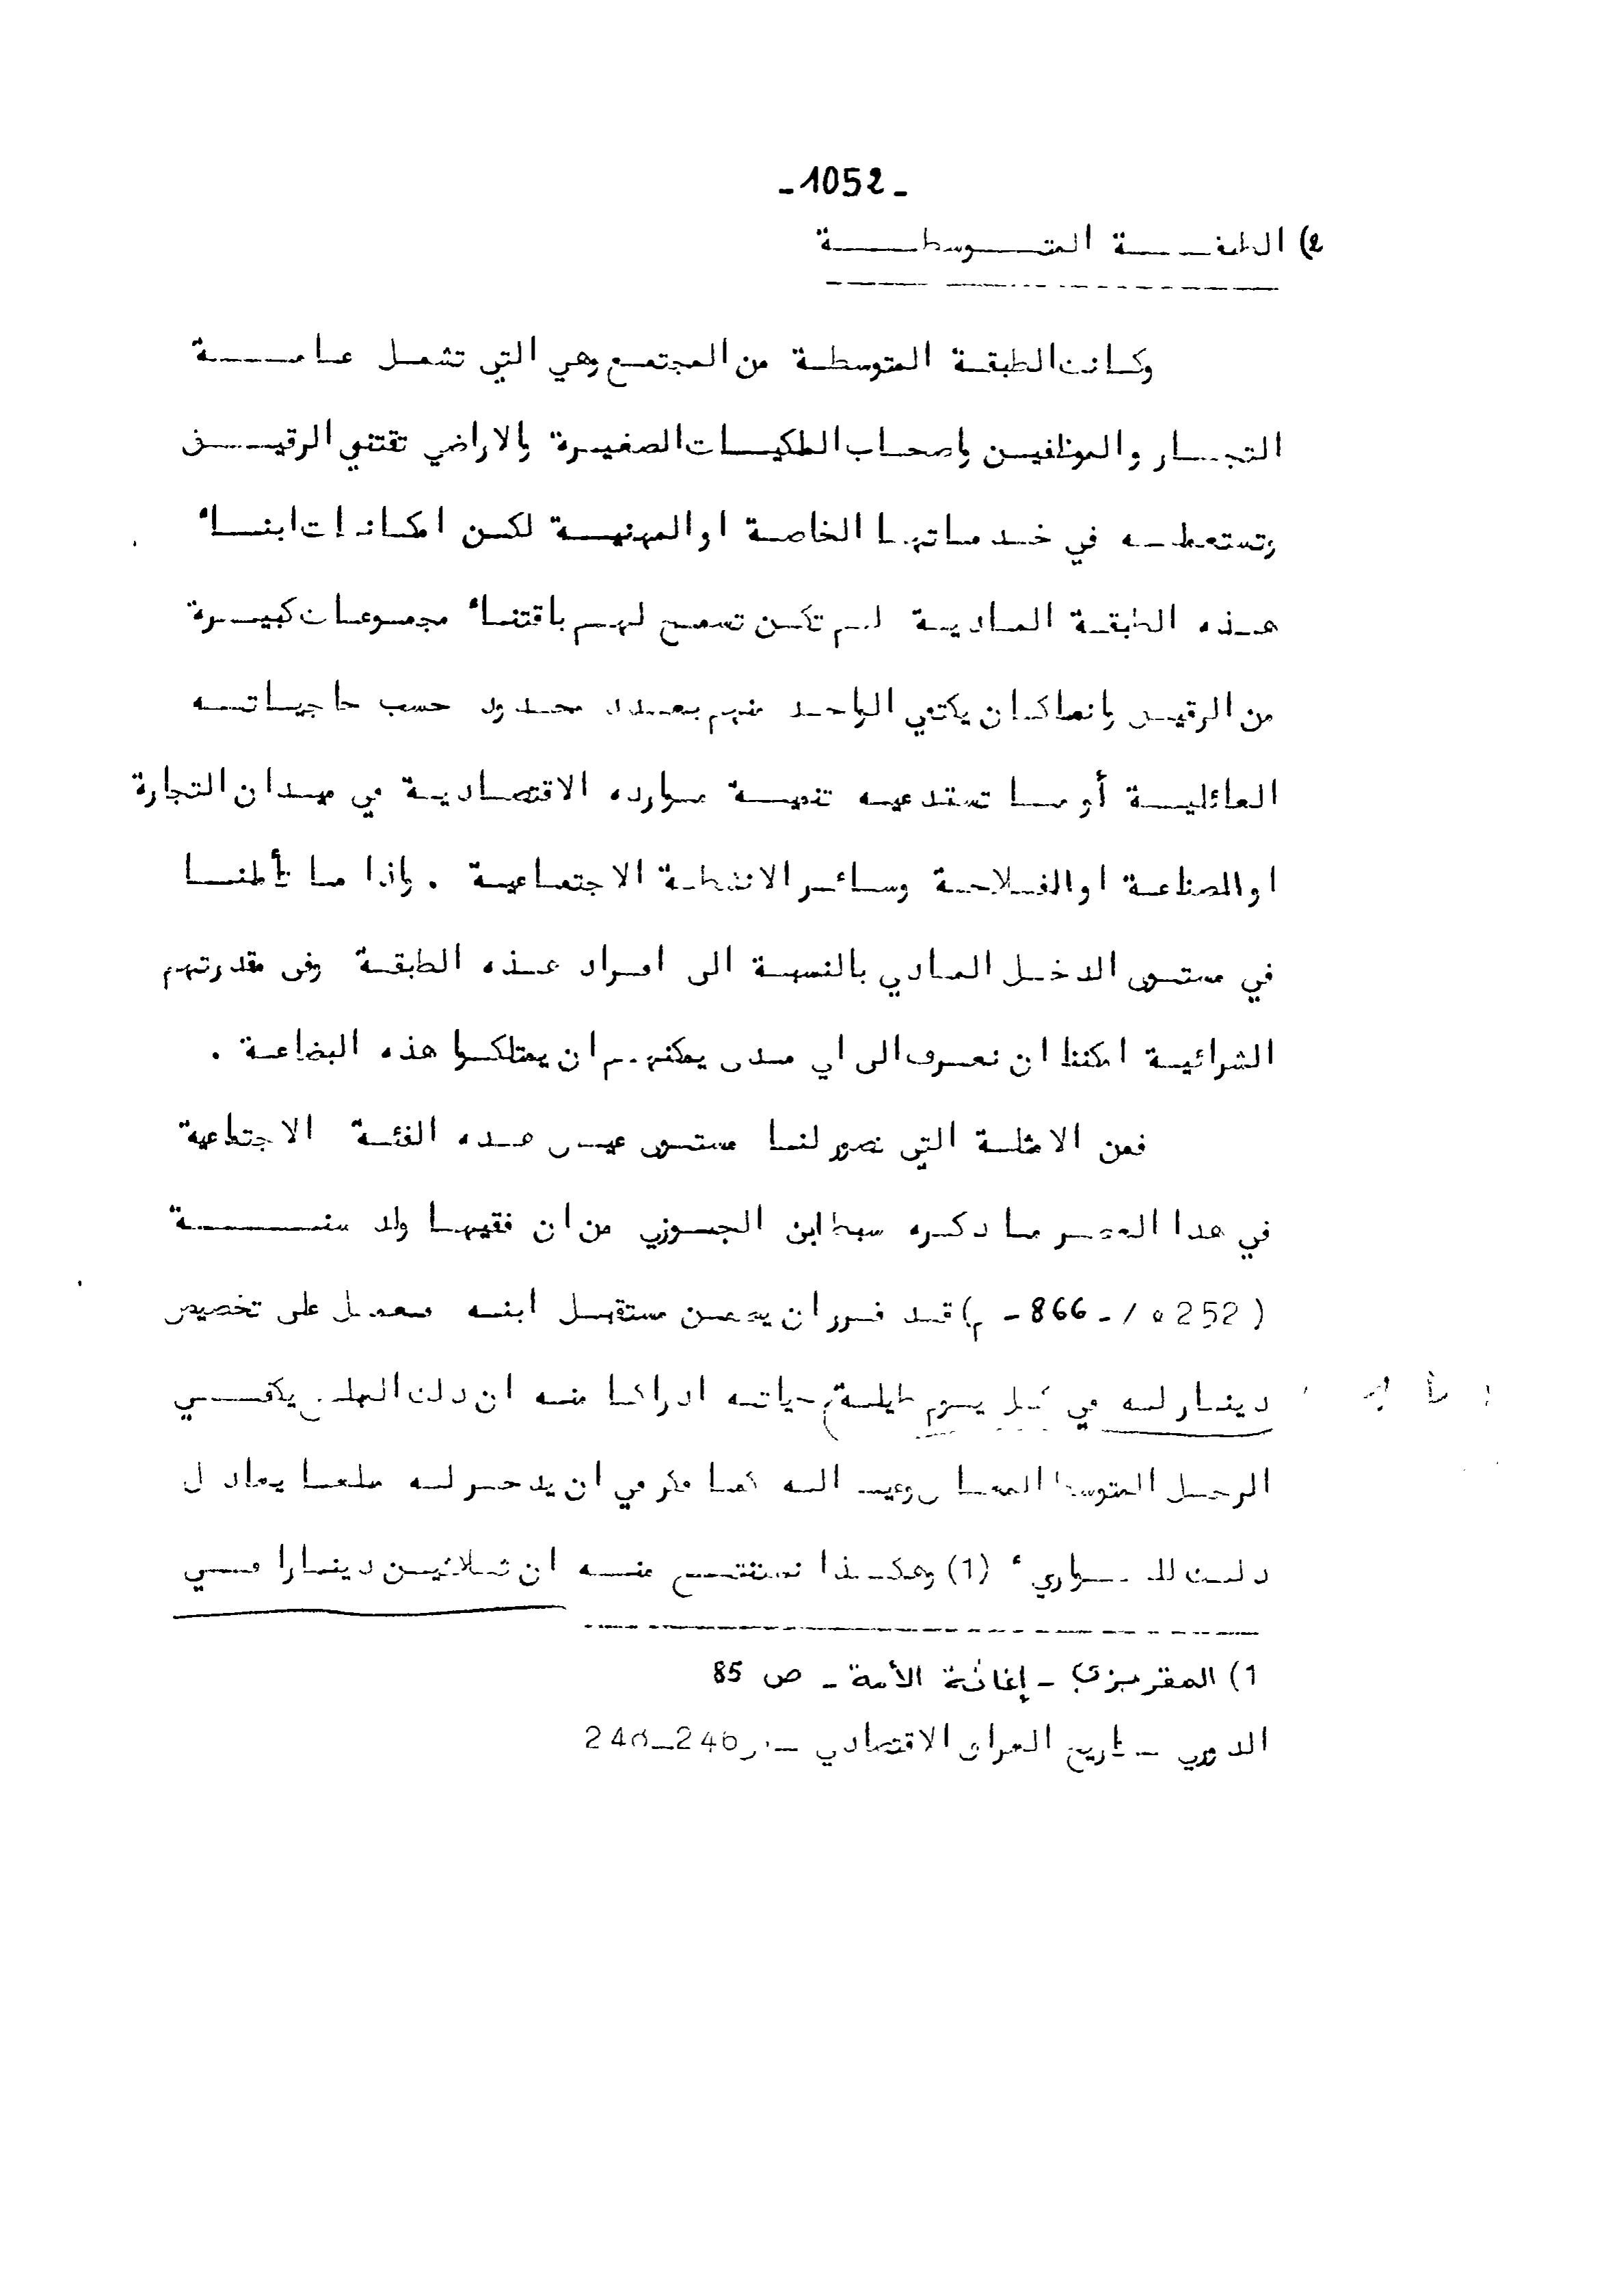 -1052-
2) الطبقة المتوسطة
وكانت الطبقة المتوسطة من المجتمع وهي التي تشمل عامة
التجار والموظفين واصحاب الملكيات الصغيرة والاراضي تقتني الرقيق
وتستعمله في خدماتها الخاصة او المهنية لكن امكانات ابناء
هذه الطبقة المادية لم تكن تسمح لهم باقتناء مجموعات كبيرة
من الرقيق وانما كان يكتفي الواحد منهم بعدد محدود حسب حاجياته
العائلية أو ما تستدعيه تنمية موارده الاقتصادية في ميدان التجارة
او الصناعة او الفلاحة وسائر الانشطة الاجتماعية . واذا ما تأملنا
في مستوى الدخل المادي بالنسبة الى افراد هذه الطبقة وفى مقدرتهم
الشرائية امكننا ان نعرف الى اي مدى يمكنهم ان يمتلكوا هذه البضاعة .
فمن الامثلة التي تصور لنا مستوى عيش هذه الفئة الاجتماعية
في هذا العصر ما ذكره سبط ابن الجوزي من ان فقيها ولد سنة
(252 ه / - 866 - م) قد قرر ان يضمن مستقبل ابنه فعمل على تخصيص
دينار له في كل يوم طيلة حياته ادراكا منه ان ذلك المبلغ يكفي
الرجل المتوسط المعاش وعياله كما فكر في ان يدخر له مبلغا يعادل
ذلك للطواريء (1) وهكذا نستنتج منه ان ثلاثين دينارا في
1) المقريزي - إغاثة الأمة - ص 85
الدوري - تاريخ العراق الاقتصادي - ص 246-248